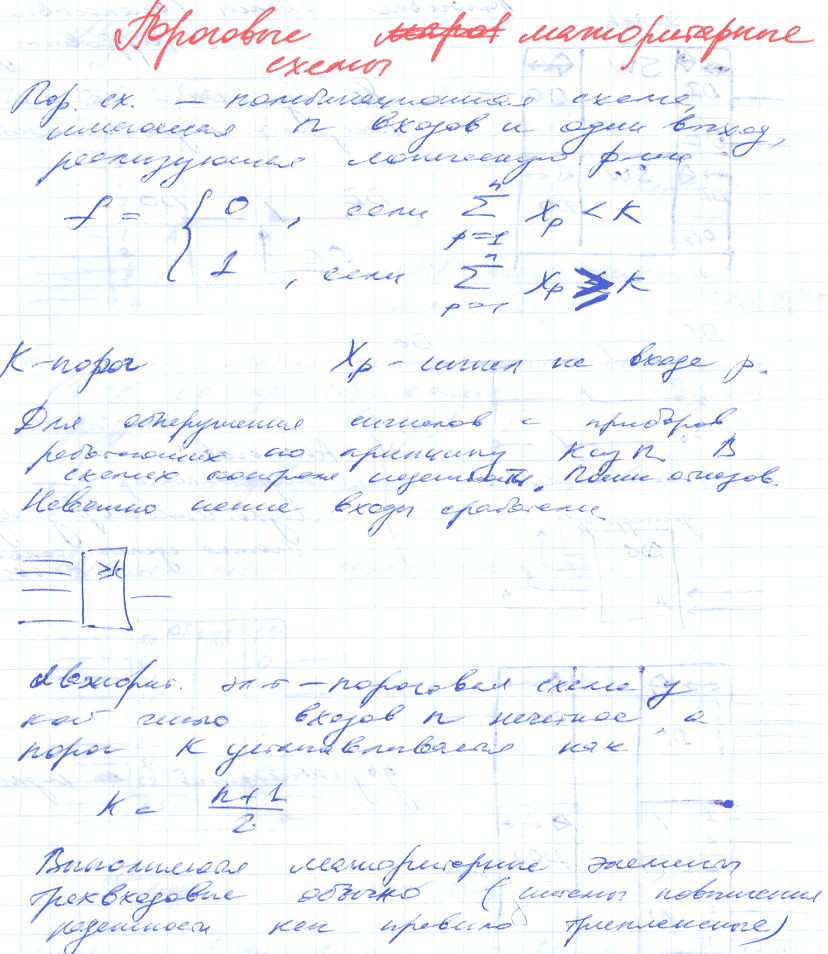 Пороговые мажоритарные
схемы
Пор. сх. — комбинационная схема,
имеющая n входов и один выход,
реализующая логическую ф-лу
f = { 0 , если Σ (p=1..n) Xp < K
1 , если Σ (p=1..n) Xp ≥ K
K - порог Xp - сигнал на входе p.
Для обнаружения сигналов с приборов
работающих по принципу K из n. В
схемах контроля надежности. Поиск отказов.
Неважно какие входы сработали
≥K
Мажорит. эл-т — пороговая схема у
кой число входов n нечетное а
порог K устанавливается как
K = (n+1)/2
Выполняются мажоритарные элементы
трехвходовые обычно (системы повышения
надежности как правило )